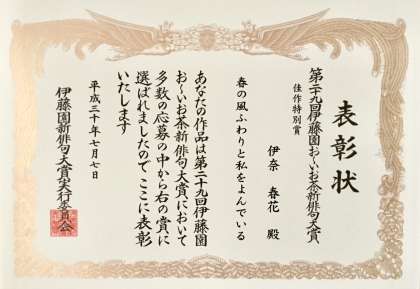 表彰状
第二十九回伊藤園お～いお茶新俳句大賞
佳作特別賞
伊奈 春花 殿
春の風ふわりと私をよんでいる
あなたの作品は第二十九回伊藤園
お～いお茶新俳句大賞において
多数の応募の中から右の賞に
選ばれましたのでここに表彰
いたします
平成三十年七月七日
伊藤園新俳句大賞実行委員会